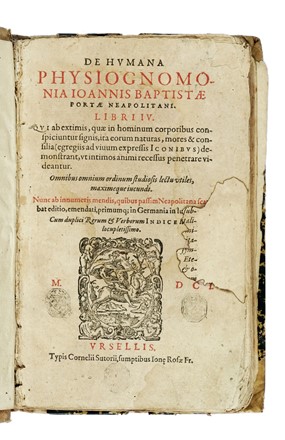 DE HVMANA
PHYSIOGNOMO-
NIA IOANNIS BAPTISTÆ
PORTÆ NEAPOLITANI.
LIBRI IV.
QVI ab extimis, quæ in hominum corporibus con-
spiciuntur signis, ita eorum naturas, mores & con-
silia (egregiis ad viuum expressis ICONIBVS) de-
monstrant, vt intimos animi recessus penetrare vi-
deantur.
Omnibus omnium ordinum studiosis lectu vtiles,
maximeque iucundi.
Nunc ab innumeris mendis, quibus passim Neapolitana sca-
bat editio, emendati, primumq; in Germania in lu
Cum duplici Rerum & Verborum INDICE
locupletissimo.
M. DC I.
VRSELLIS,
Typis Cornelii Sutorii, sumptibus Ionę Rosæ Fr.